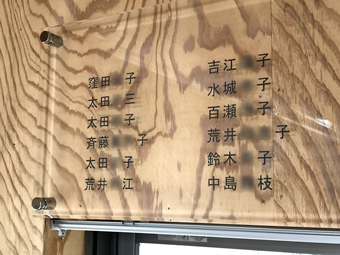 窪田 子
太田 三
太田 子
斉藤 子
太田 子
荒井 江
吉江 子
水城 子
百瀬 子
荒井 子
鈴木 子
中島 枝